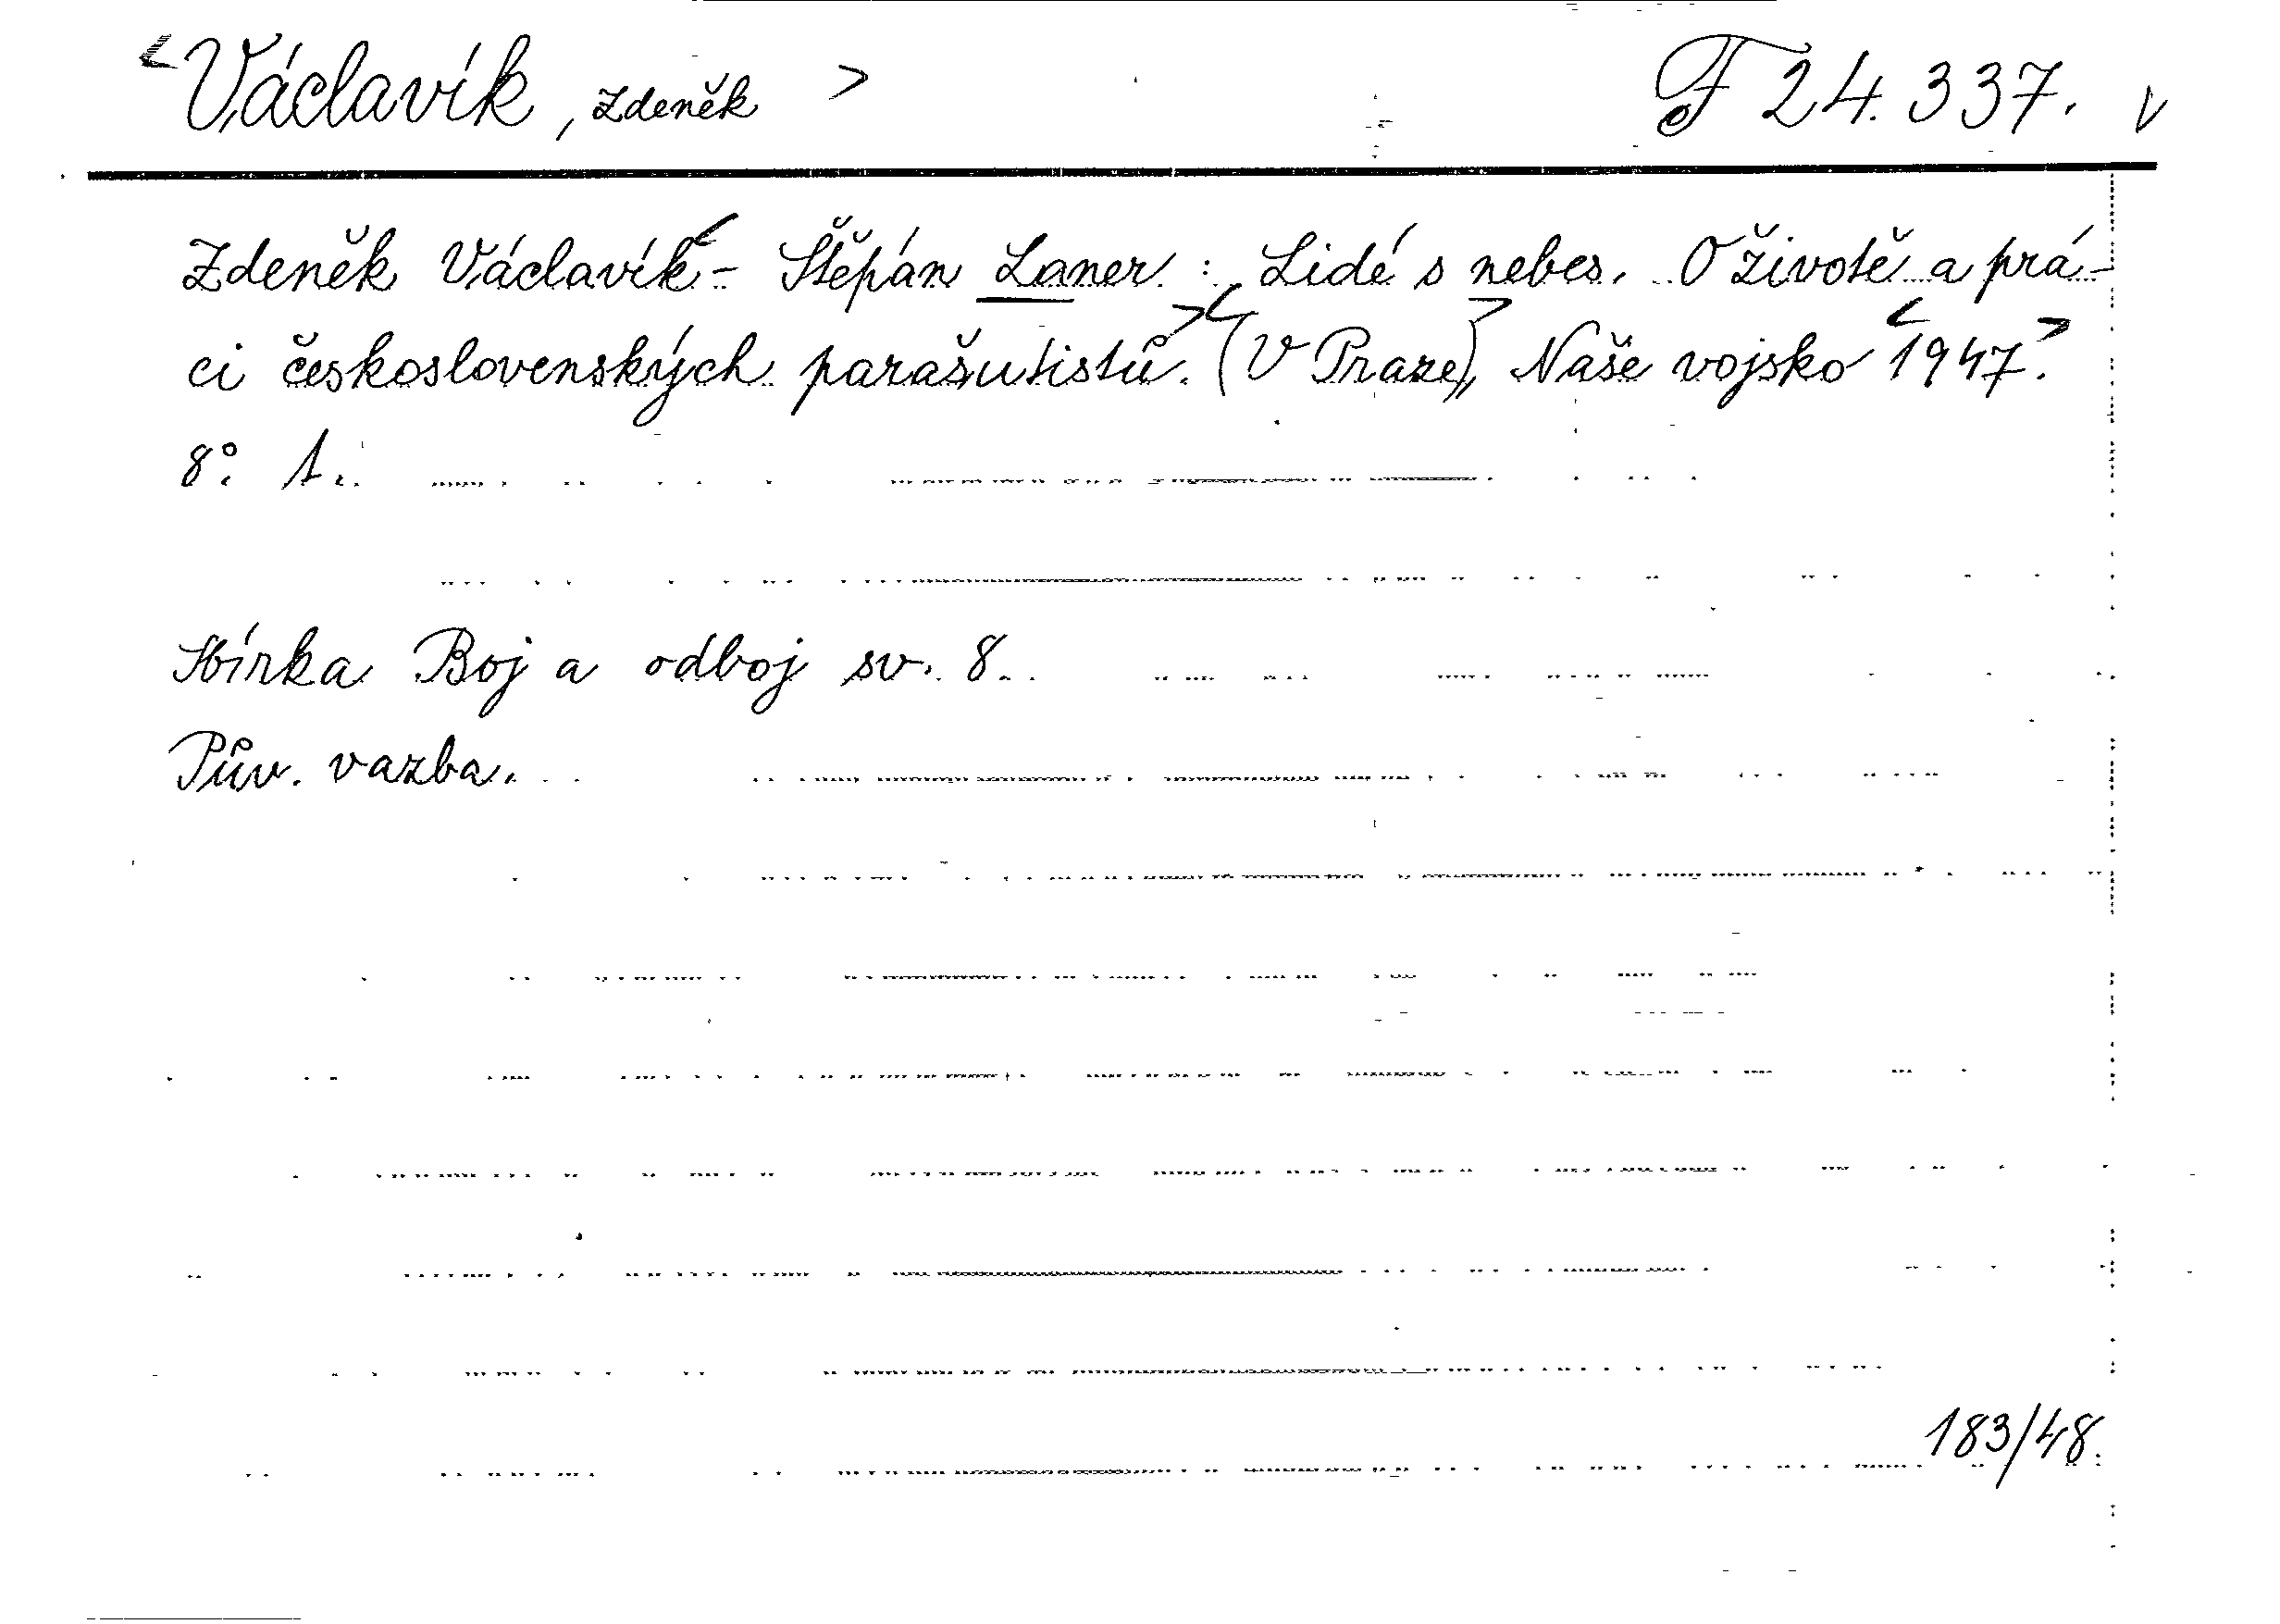 <Václavík, Zdeněk> F 24.337. v
Zdeněk Václavík< - Štěpán Laner : Lidé s nebes. O životě a prá-
ci československých parašutistů.> <(V Praze)>, Naše vojsko <1947.>
8°. 1..
Sbírka Boj a odboj sv. 8.
Pův. vazba.
183/48.